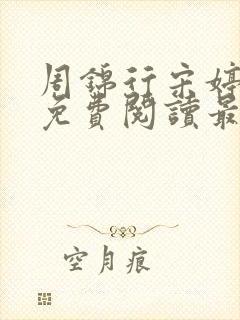 周錦行宋婷
免費閱讀最
空月痕